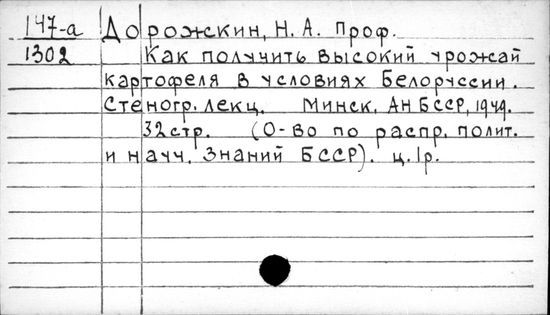 147-а Дорожскин, Н. А. Проф.
1302 Как получить высокий урожай
картофеля в условиях Белоруссии.
Стеногр. лекц. Минск, АН БССР, 1949.
32 стр. (О-во по распр. полит.
и науч. Знаний БССР). ц. 1р.